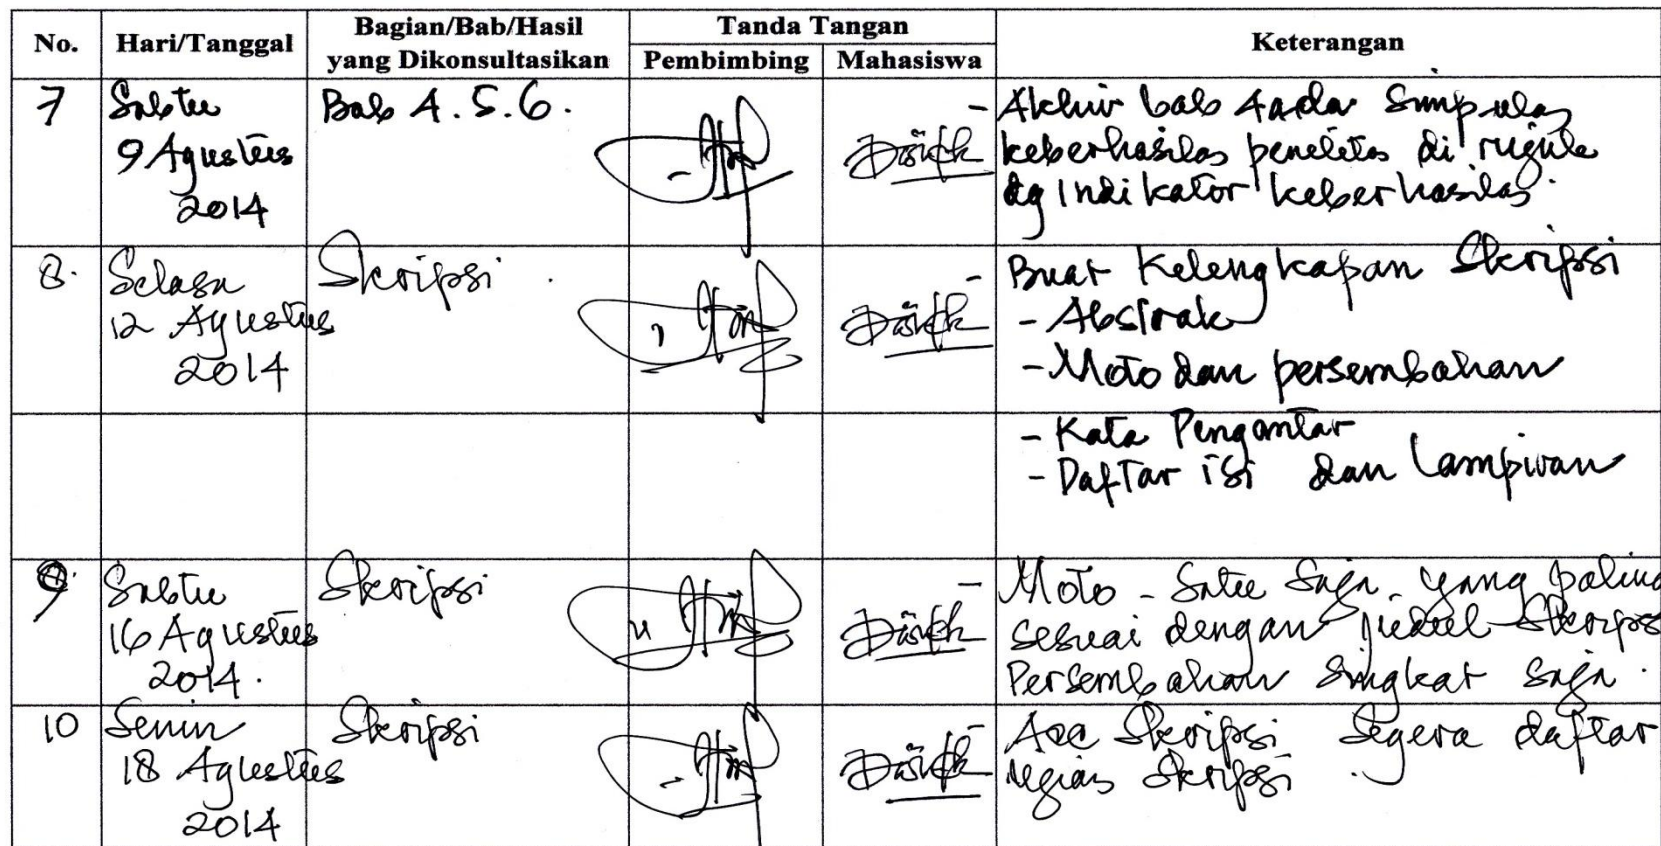 No. Hari/Tanggal Bagian/Bab/Hasil yang Dikonsultasikan Tanda Tangan Keterangan
Pembimbing Mahasiswa
7 Sabtu 9 Agustus 2014 Bab 4.5.6.
- Akhir bab 4 ada simpulan
keberhasilan penelitian di
dg indikator keberhasilan.
8. Selasa 12 Agustus 2014 Skripsi.
- Buat Kelengkapan Skripsi
- Abstrak
- Moto dan persembahan
- Kata Pengantar
- Daftar isi dan Lampiran
9. Sabtu 16 Agustus 2014. Skripsi
- Moto - Satu saja yang paling
sesuai dengan judul Skripsi
Persembahan singkat saja.
10 Senin 18 Agustus 2014 Skripsi
- Acc Skripsi Segera daftar
ujian Skripsi.